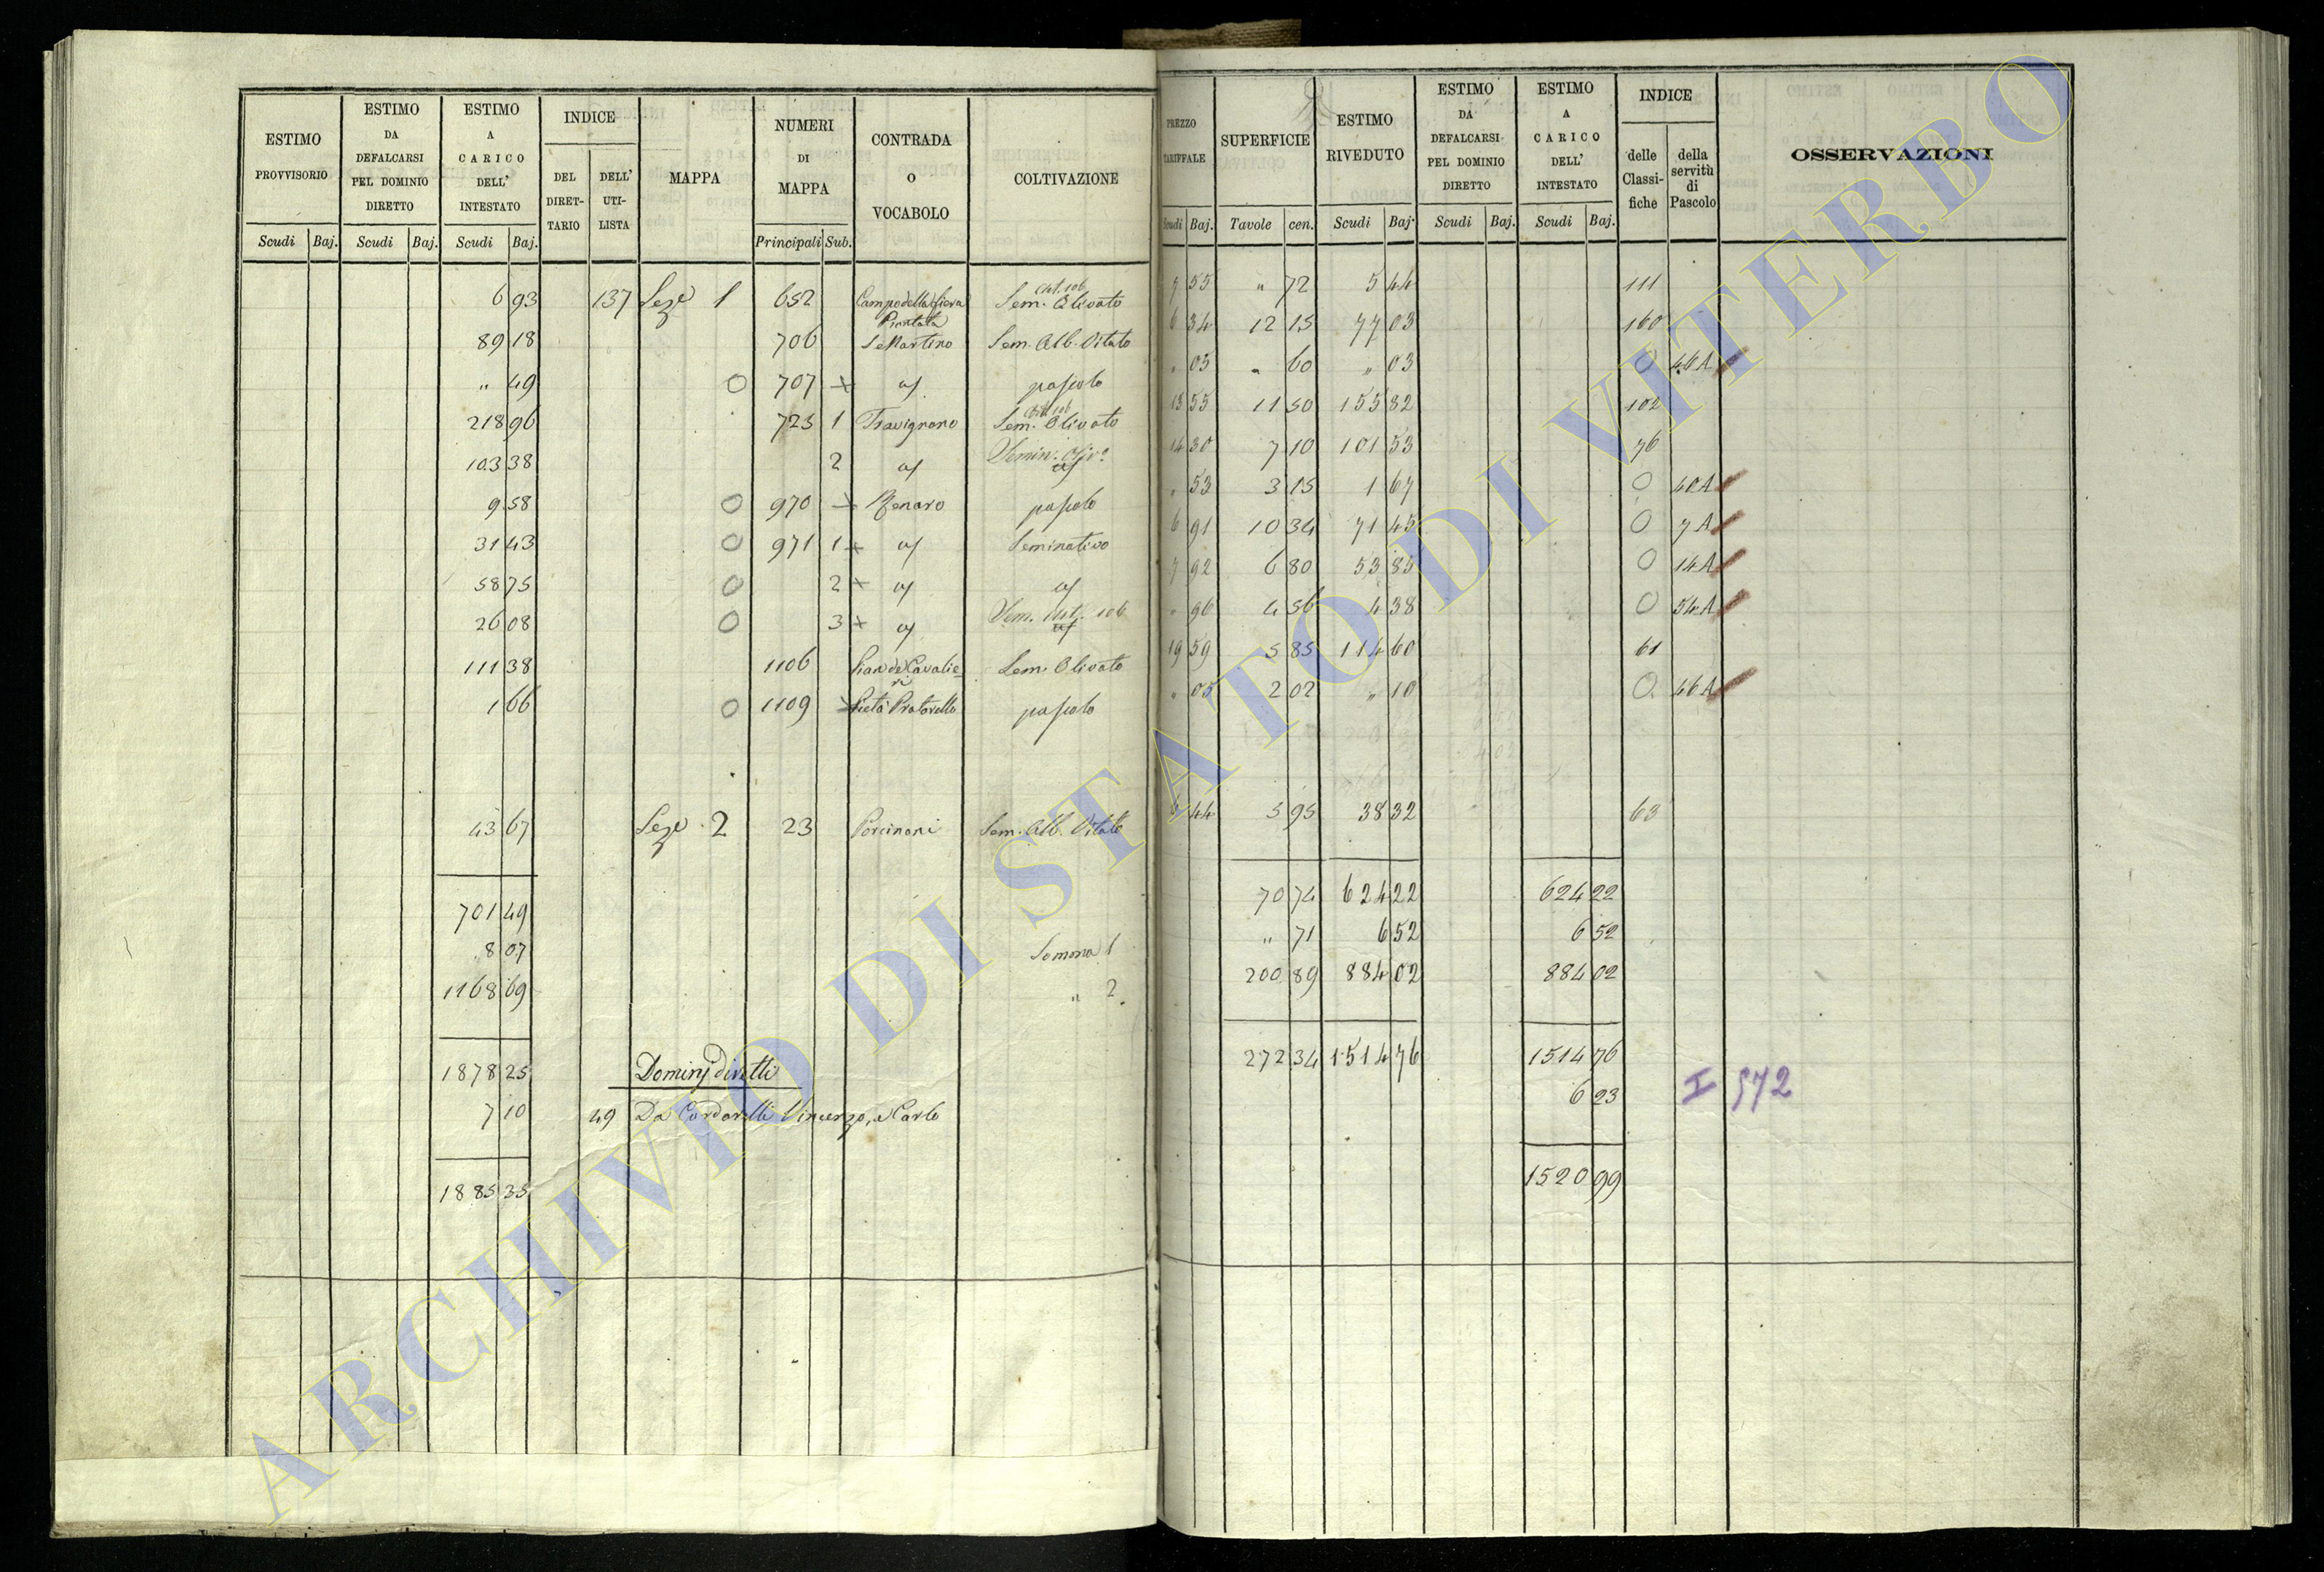 ESTIMO PROVVISORIO | ESTIMO DA DEFALCARSI PEL DOMINIO DIRETTO | ESTIMO A CARICO DELL' INTESTATO | INDICE DEL DIRETTARIO | DELL' UTILISTA | MAPPA | NUMERI DI MAPPA | CONTRADA O VOCABOLO | COLTIVAZIONE | PREZZO TARIFFALE | SUPERFICIE | ESTIMO RIVEDUTO | ESTIMO DA DEFALCARSI PEL DOMINIO DIRETTO | ESTIMO A CARICO DELL' INTESTATO | INDICE delle Classifiche | della servitù di Pascolo | OSSERVAZIONI
Scudi | Baj. | Scudi | Baj. | Scudi | Baj. | Principali | Sub. | Scudi | Baj. | Tavole | cen. | Scudi | Baj. | Scudi | Baj. | Scudi | Baj.
6 93 | 137 | Seze 1 | 652 | Campo della Fiera | Sem. Olivato | 7 55 | " 72 | 5 44 | 111
89 18 | 706 | Piantata S. Martino | Sem. Alb. Vitato | 6 34 | 12 15 | 77 03 | 160
" 49 | O | 707 | × | pascolo | " 05 | " 60 | " 03 | O | 46 A
218 96 | 723 | 1 | Travignano | Sem. Olivato | 13 55 | 11 50 | 155 82 | 102
103 38 | 2 | Semin. Oliv. | 14 30 | 7 10 | 101 53 | 76
9 58 | O | 970 | × | pascolo | " 53 | 3 15 | 1 67 | O | 40 A
31 43 | O | 971 | 1 × | Seminativo | 6 91 | 10 34 | 71 45 | O | 7 A
58 75 | O | 2 × | 7 92 | 6 80 | 53 85 | O | 14 A
26 08 | O | 3 × | Sem. | " 96 | 4 56 | 4 38 | O | 54 A
111 38 | 1106 | Pian de Cavalieri | Sem. Olivato | 19 59 | 5 85 | 114 60 | 61
1 66 | O | 1109 | × | Pietà Pratorello | pascolo | " 05 | 2 02 | " 10 | O | 46 A
43 67 | Seze 2 | 23 | Porcinari | Sem. Alb. Vitato | 6 44 | 5 95 | 38 32 | 63
701 49 | 70 74 | 624 22 | 624 22
8 07 | Somma 1 | " 71 | 6 52 | 6 52
1168 69 | " 2 | 200 89 | 884 02 | 884 02
1878 25 | Dominj diretti | 272 34 | 1514 76 | 1514 76
7 10 | 49 | Da Cordarelli Vincenzo, e Carlo | 6 23 | I 572
1885 35 | 1520 99
ARCHIVIO DI STATO DI VITERBO